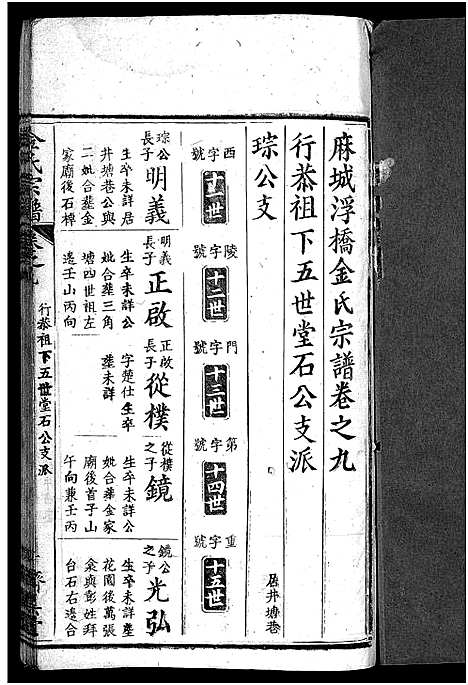 麻城浮橋金氏宗譜卷之九
行恭祖下五世堂石公支派
琮公支
居井塘巷
西字號
十一世
陵字號
十二世
門字號
十三世
第字號
十四世
重字號
十五世
琮公長子
明義
生卒未詳居
井塘巷公與
二妣合塟金
家廟後石椑
明義長子
正啟
生卒未詳公
妣合塟三角
塘四世祖左
邊壬山丙向
正啟長子
從樸
字楚仕生卒
塟未詳
從樸之子
鏡
生卒未詳公
妣合塟金家
廟後首子山
午向兼壬丙
鏡公之子
光弘
生卒未詳塟
花園後萬張
籴與彭姓拜
台石右邉合
金氏宗譜
卷之九
行恭祖下五世堂石公支派